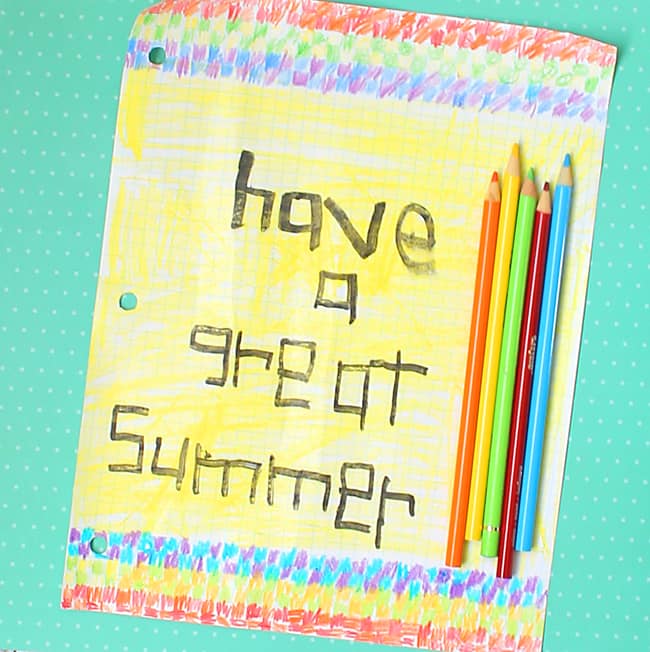 have
a
great
Summer